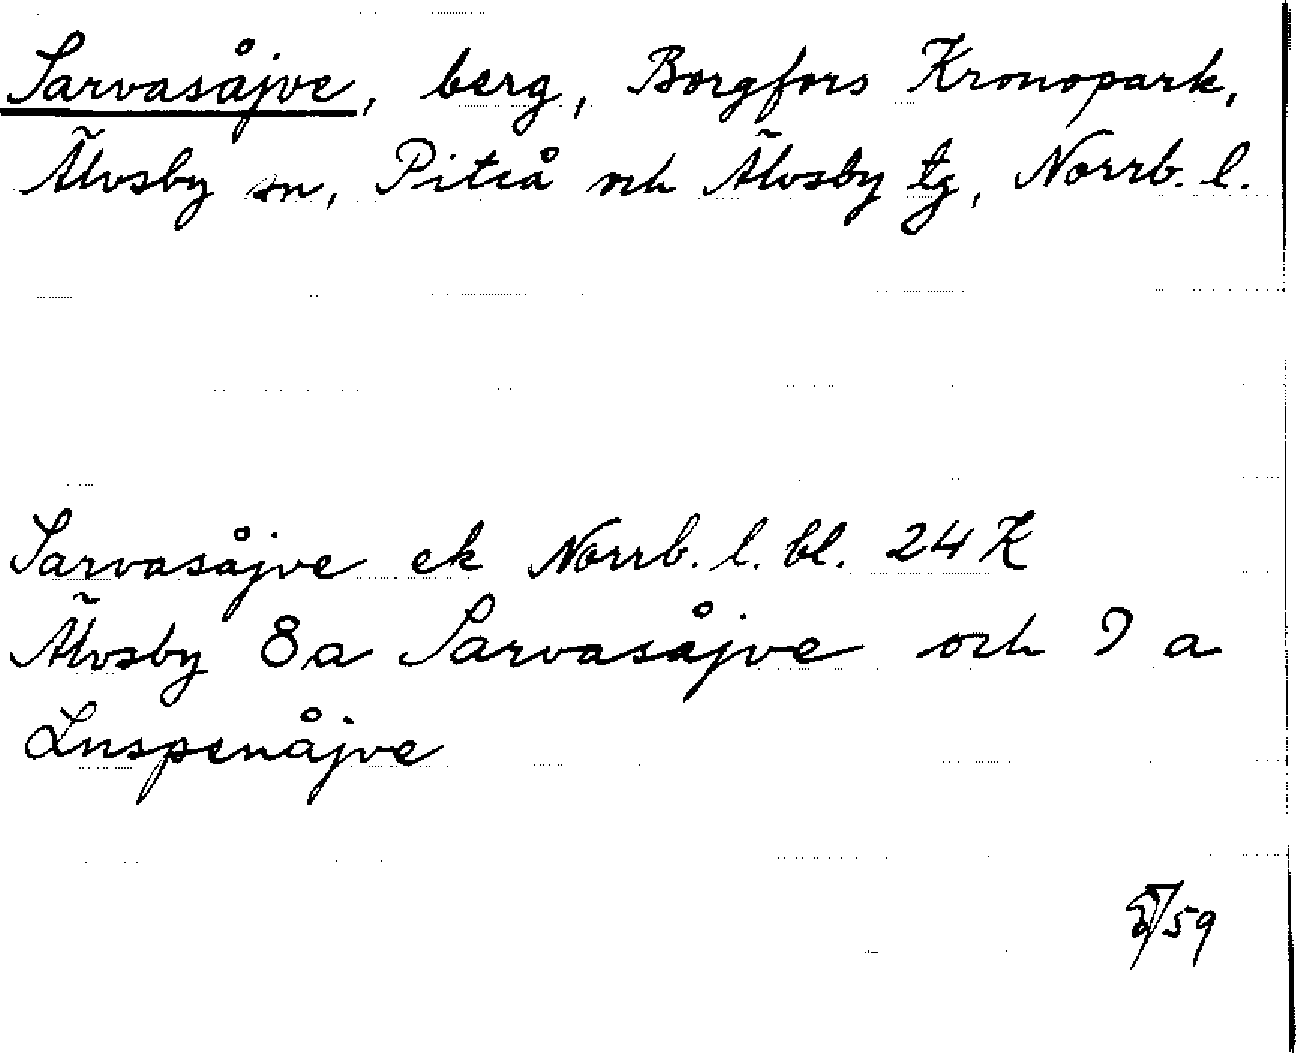 Sarvasåjve, berg, Borgfors Kronopark,
Älvsby sn, Piteå och Älvsby tg, Norrb. l.
Sarvasåjve ek Norrb. l. bl. 24 K
Älvsby 8a Sarvasåjve och 9 a
Luspenåjve
/59